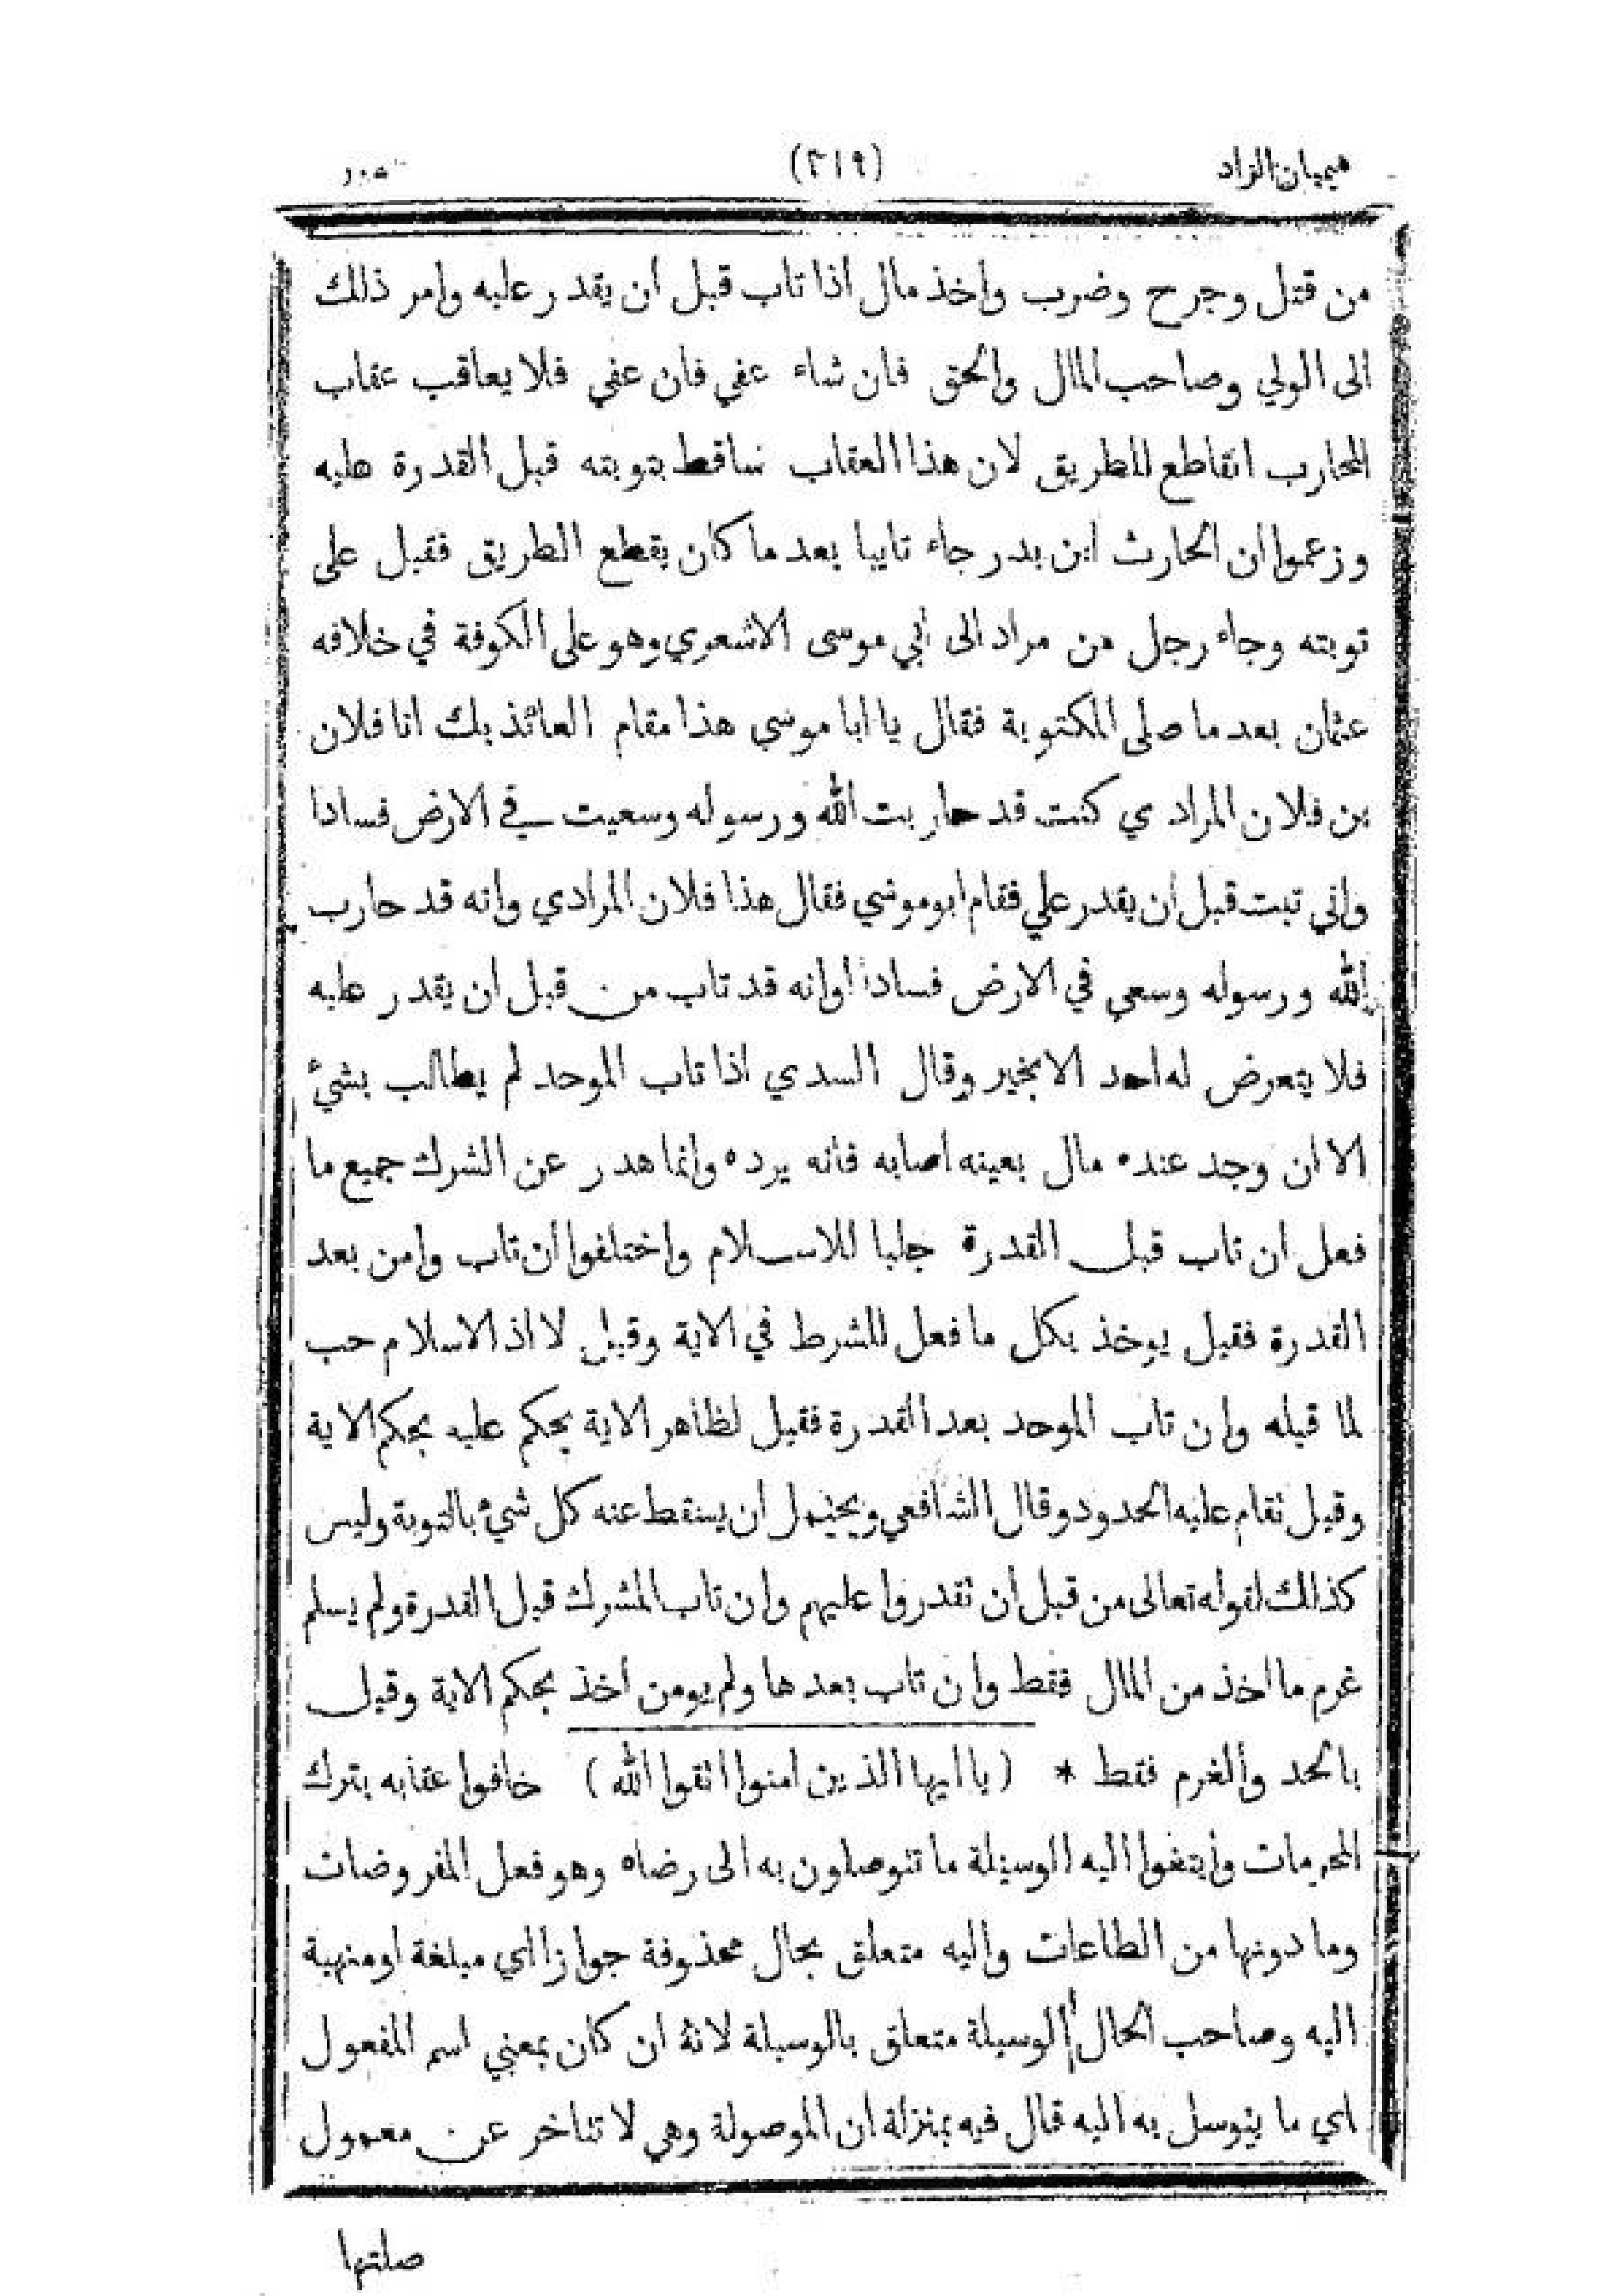 هيميان الزاد (٣١٩)
من قتل وجرح وضرب واخذ مال اذا تاب قبل ان يقدر عليه وامر ذلك
الى الولي وصاحب المال والحق فان شاء عفي فان عفي فلا يعاقب عقاب
المحارب القاطع للطريق لان هذا العقاب ساقط بتوبته قبل القدرة عليه
وزعموا ان الحارث ابن بدر جاء تايبا بعد ما كان يقطع الطريق فقبل على
توبته وجاء رجل من مراد الى ابي موسى الاشعري وهو على الكوفة في خلافه
عثمان بعد ما صلى المكتوبة فقال يا ابا موسي هذا مقام العائذ بك انا فلان
بن فلان المرادي كنت قد حاربت الله ورسوله وسعيت في الارض فسادا
واني تبت قبل ان يقدر علي فقام ابو موسي فقال هذا فلان المرادي وانه قد حارب
الله ورسوله وسعي في الارض فسادا وانه قد تاب من قبل ان يقدر عليه
فلا يتعرض له احد الا بخير وقال السدي اذا تاب الموحد لم يطالب بشيء
الا ان وجد عنده مال بعينه اصابه فانه يرده وانما هدر عن الشرك جميع ما
فعل ان تاب قبل القدرة جلبا للاسلام واختلفوا ان تاب وامن بعد
القدرة فقيل يوخذ بكل ما فعل للشرط في الاية وقيل لا اذ الاسلام جب
لما قبله وان تاب الموحد بعد القدرة فقيل لظاهر الاية يحكم عليه بحكم الاية
وقيل تقام عليه الحدود وقال الشافعي ويحتمل ان يسقط عنه كل شيء بالتوبة وليس
كذالك لقوله تعالى من قبل ان تقدروا عليهم وان تاب المشرك قبل القدرة ولم يسلم
غرم ما اخذ من المال فقط وان تاب بعدها ولم يومن اخذ بحكم الاية وقيل
بالحد والغرم فقط * (يا ايها الذين امنوا اتقوا الله) خافوا عقابه بترك
المحرمات وابتغوا اليه الوسيلة ما تتوصلون به الى رضاه وهو فعل المفروضات
وما دونها من الطاعات واليه متعلق بحال محذوفة جوازا اي مبلغة او منهية
اليه وصاحب الحال الوسيلة متعلق بالوسيلة لانه ان كان بمعني اسم المفعول
اي ما يتوسل به اليه فال فيه بمنزلة ان الموصولة وهي لا تتاخر عن معمول
صلتها